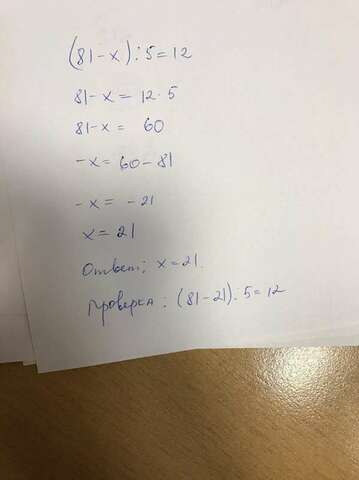 (81-x):5=12
81-x = 12·5
81-x = 60
-x = 60-81
-x = -21
x = 21
Ответ: x=21.
Проверка: (81-21):5=12